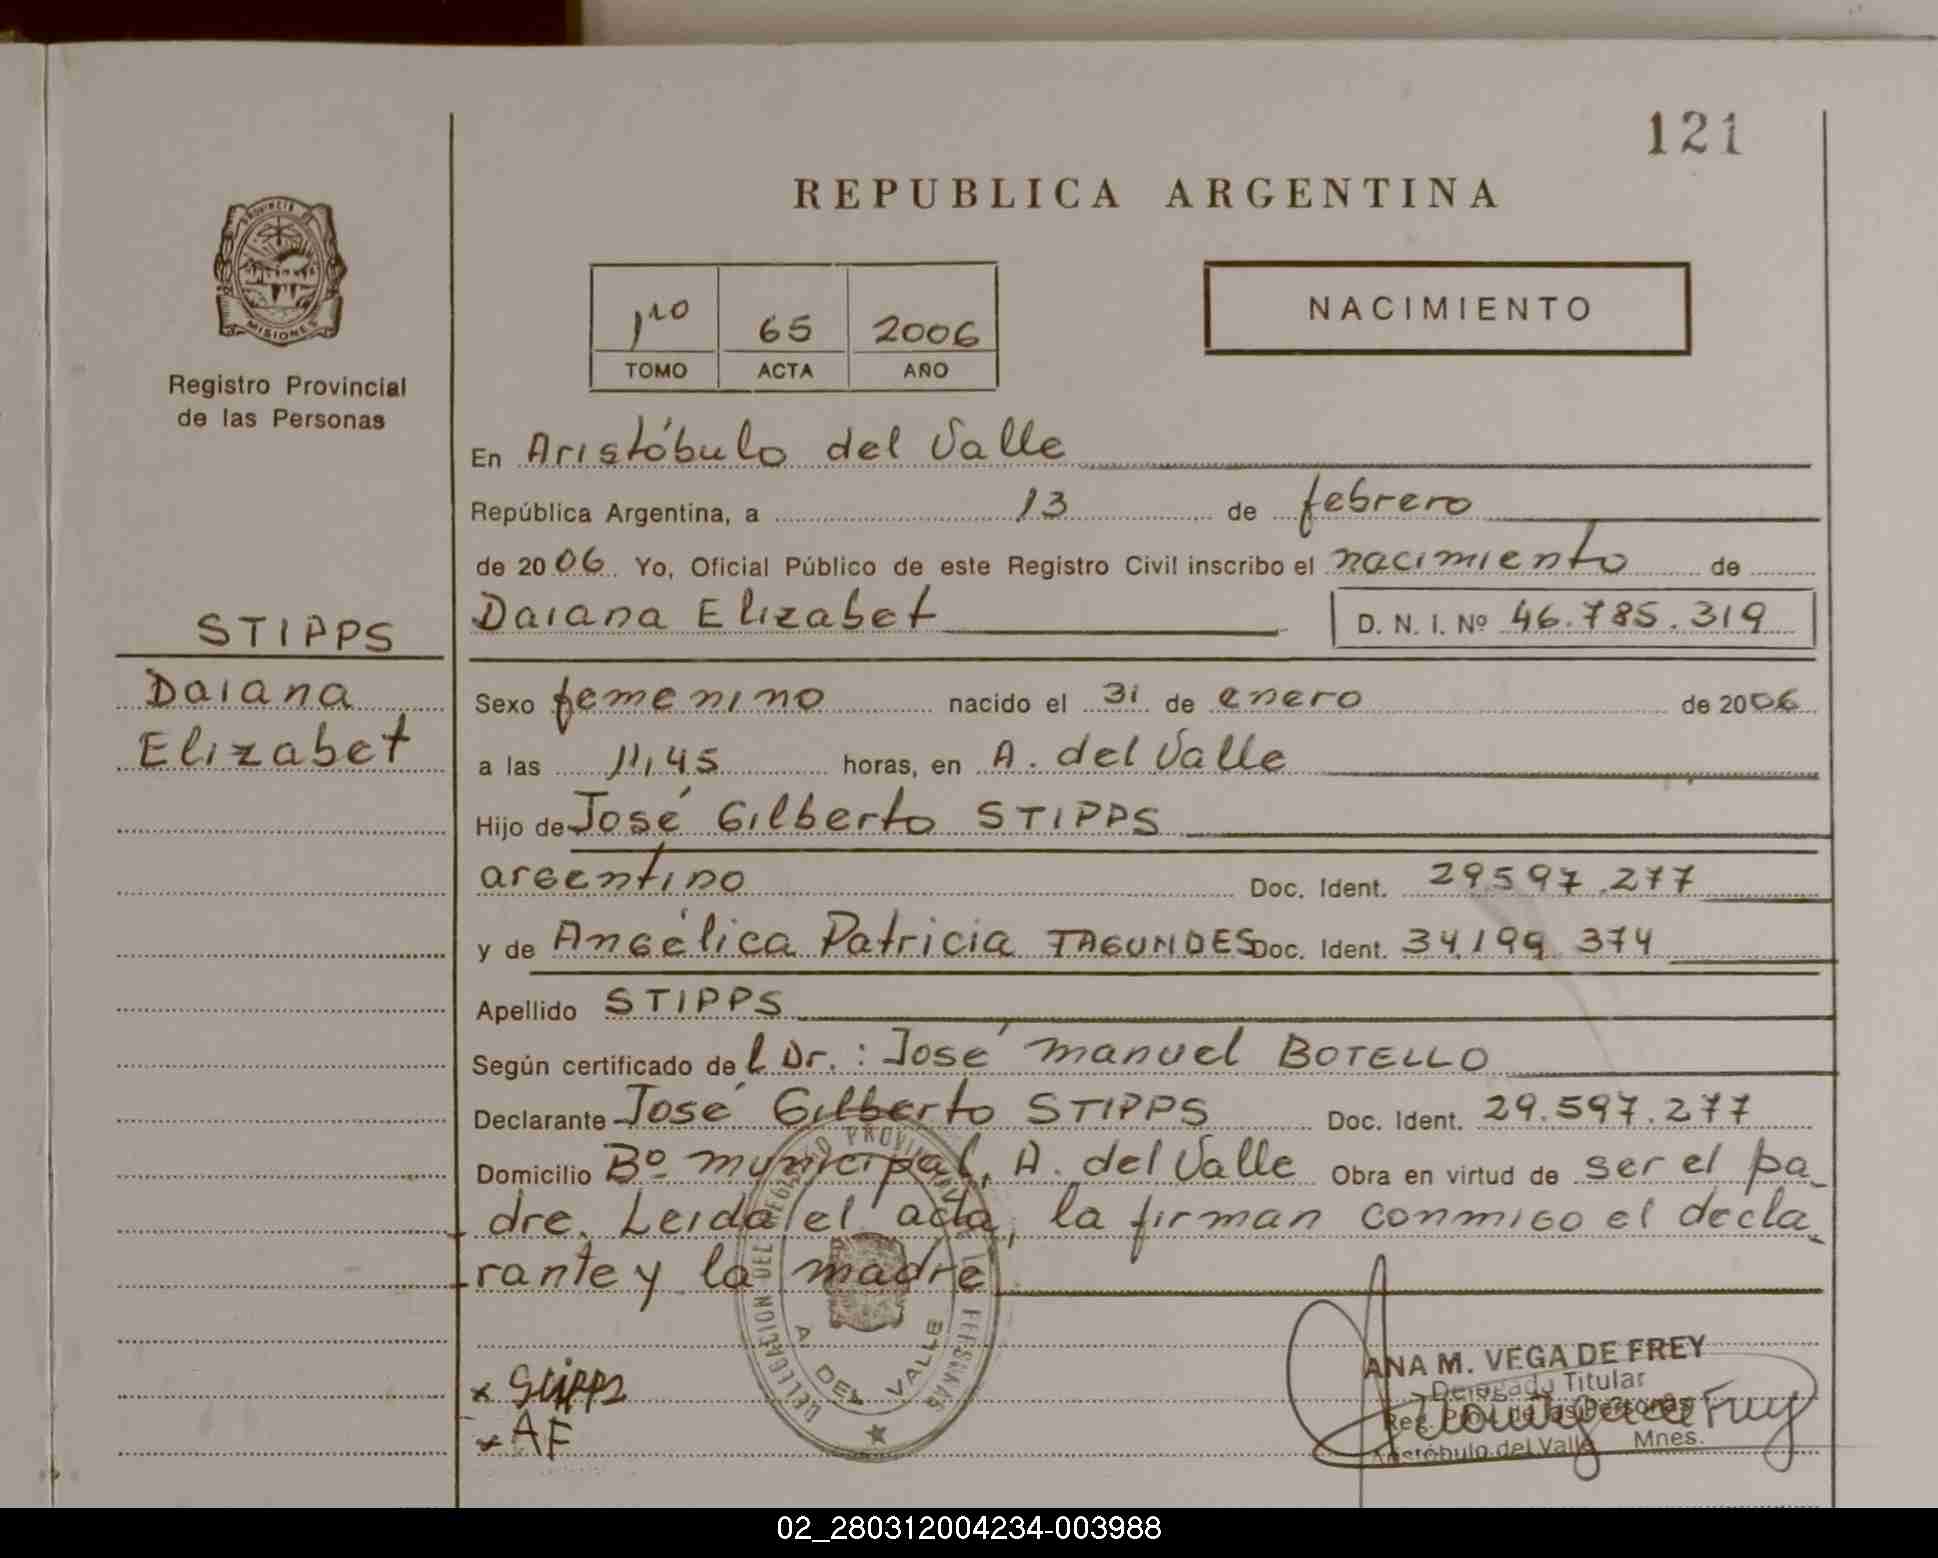 121
REPUBLICA ARGENTINA
PROVINCIA DE
MISIONES
Registro Provincial
de las Personas
1ro 65 2006
TOMO ACTA AÑO
NACIMIENTO
En Aristóbulo del Valle
República Argentina, a 13 de febrero
de 2006 Yo, Oficial Público de este Registro Civil inscribo el nacimiento de
Daiana Elizabet D. N. I. Nº 46.785.319
STIPPS
Daiana
Elizabet
Sexo femenino nacido el 31 de enero de 2006
a las 11,45 horas, en A. del Valle
Hijo de José Gilberto STIPPS
argentino Doc. Ident. 29597.277
y de Angélica Patricia FAGUNDES Doc. Ident. 34.199 374
Apellido STIPPS
Según certificado del Dr.: José Manuel BOTELLO
Declarante José Gilberto STIPPS Doc. Ident. 29.597.277
Domicilio Bº municipal, A. del Valle Obra en virtud de ser el pa
dre. Leída el acta, la firman conmigo el decla
rante y la madre
DELEGACION DEL REGISTRO PROVINCIAL DE LAS PERSONAS
A. DEL VALLE
x Stipps
x AF
ANA M. VEGA DE FREY
Delegada Titular
Reg. Prov. de las Personas
Aristóbulo del Valle Mnes.
02_280312004234-003988